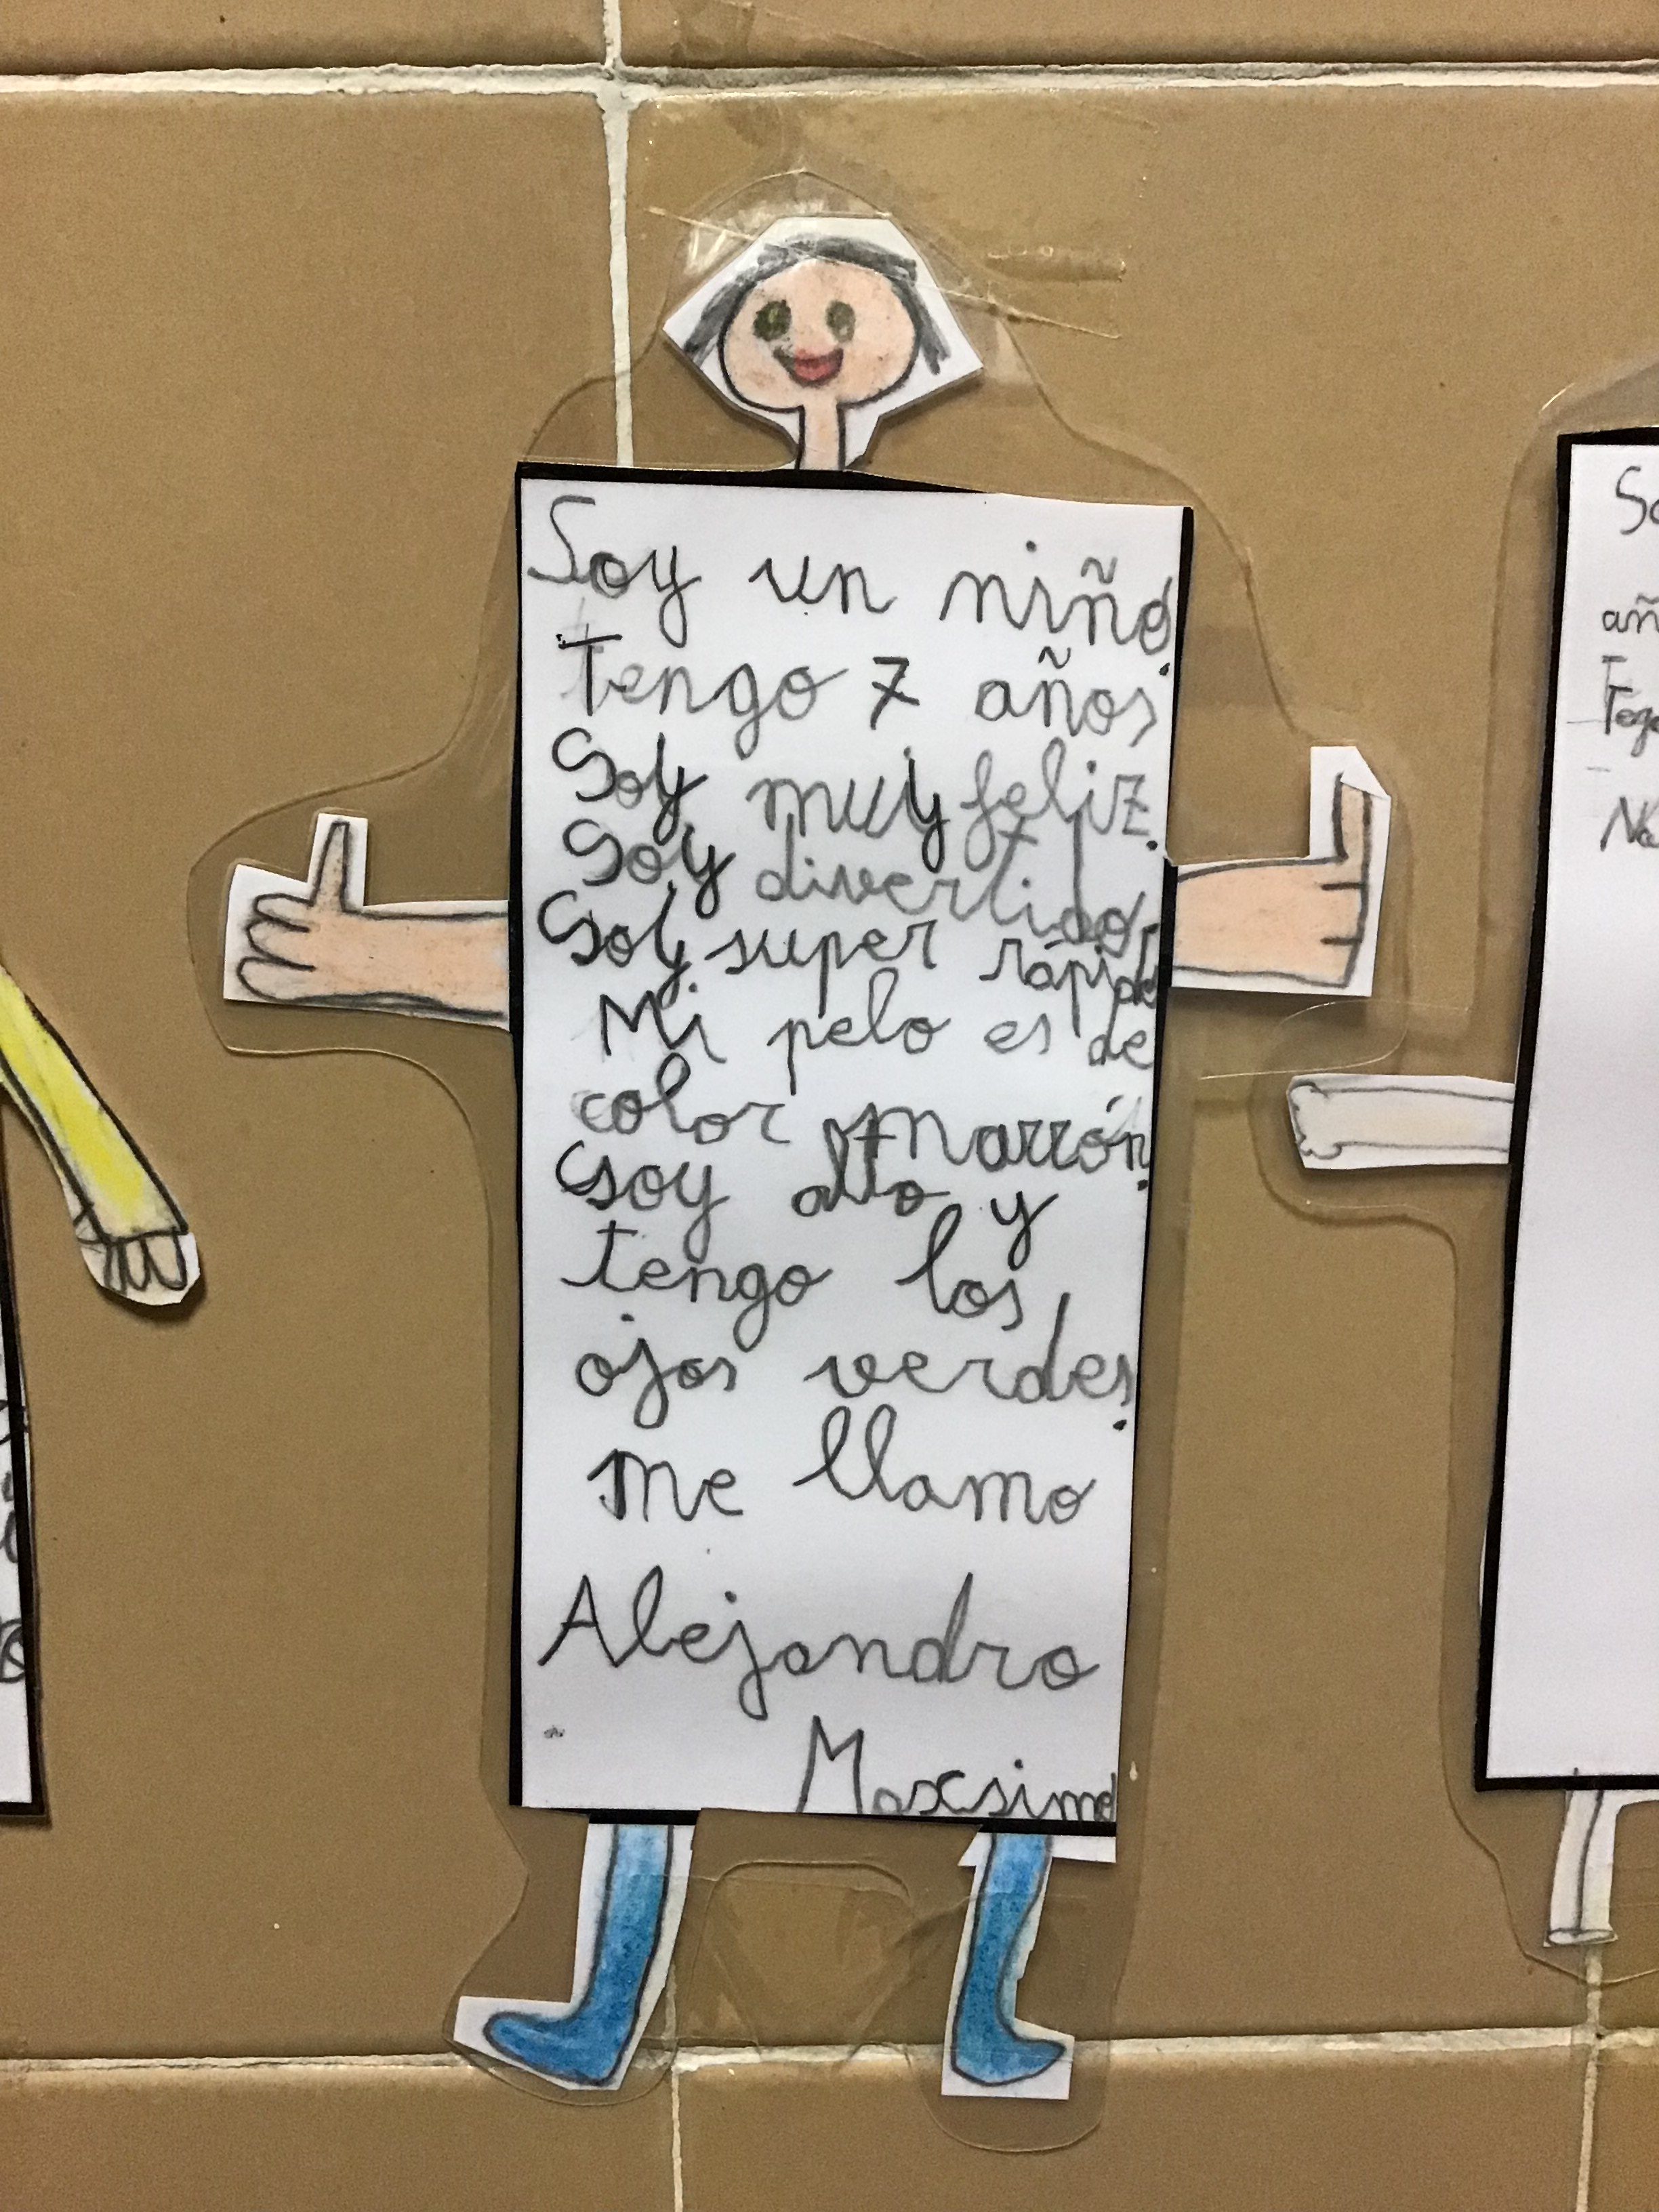 Soy un niño.
Tengo 7 años
Soy muy feliz.
Soy divertido.
Soy super rápido
Mi pelo es de
color marrón.
Soy alto y
tengo los
ojos verdes.
me llamo
Alejandro
Maxsimo
So
añ
No